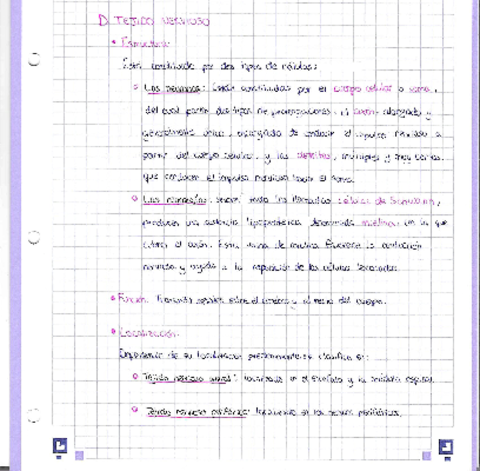 D. TEJIDO NERVIOSO
• Estructura:
Está constituido por dos tipos de células:
Las neuronas: Están constituidas por el cuerpo celular o soma,
del cual parten dos tipos de prolongaciones: el axón, alargado y
generalmente único, encargado de conducir el impulso nervioso a
partir del cuerpo neuronal, y las dendritas, múltiples y muy cortas,
que conducen el impulso nervioso hacia el soma.
Las neuroglías: células de Schwann,
producen una sustancia lipoproteica denominada mielina, en la que
el axón. Esta vaina de mielina favorece la conducción
nerviosa y ayuda a la reparación de las células lesionadas.
• Función: sobre el cerebro y el resto del cuerpo.
• Localización:
Dependiendo de su localización se clasifica en:
Tejido nervioso central: localizado en el encéfalo y la médula espinal.
Tejido nervioso periférico: en los nervios periféricos.